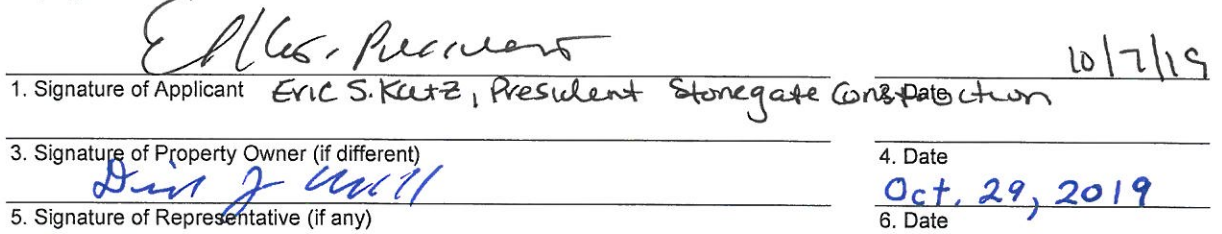 President 10/7/19
1. Signature of Applicant Eric S. Katz, President Stonegate Construction 2. Date
3. Signature of Property Owner (if different) 4. Date
Oct. 29, 2019
5. Signature of Representative (if any) 6. Date